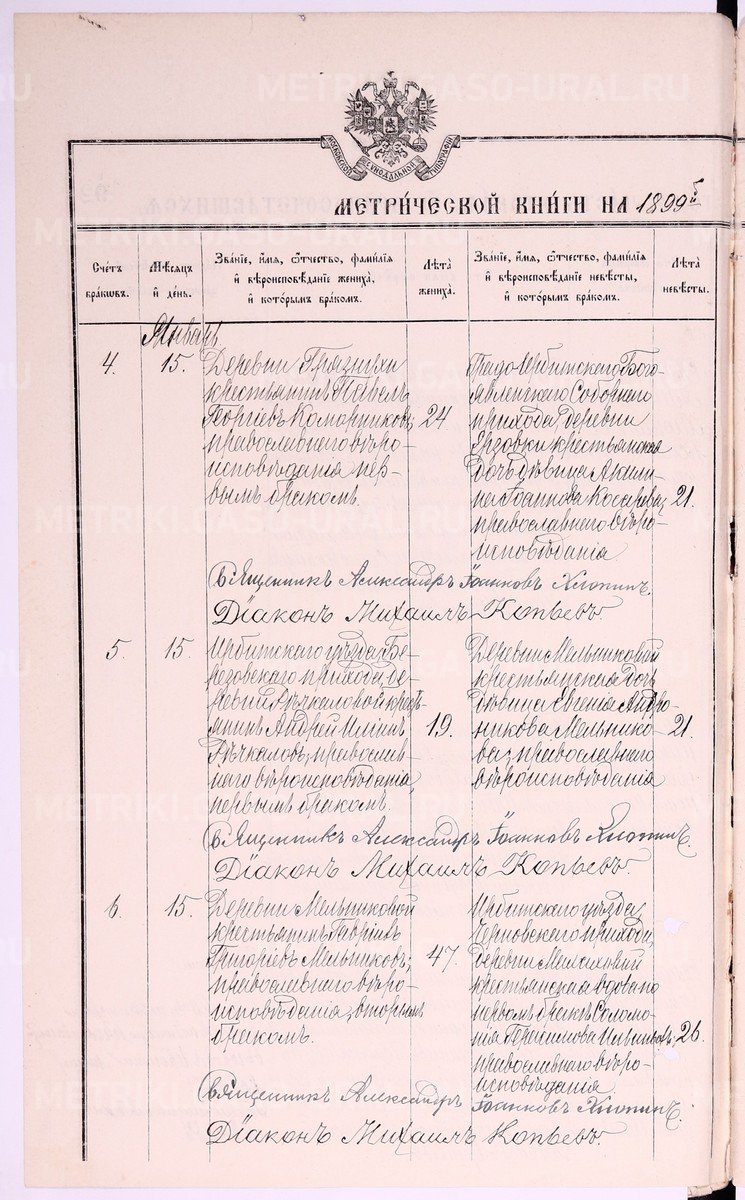 МОСКОВСКОЙ СѴНОДАЛЬНОЙ ТИПОГРАФІИ
МЕТРИ́ЧЕСКОЙ КНИ́ГИ НА 1899й
Счетъ браковъ.
Мѣсяцъ и день.
Званіе, имя, отчество, фамилія и вѣроисповѣданіе жениха, и которымъ бракомъ.
Лѣта жениха.
Званіе, имя, отчество, фамилія и вѣроисповѣданіе невѣсты, и которымъ бракомъ.
Лѣта невѣсты.
Январь
4. 15.
Деревни Грязнухи
крестьянинъ Павелъ
Георгіевъ Комарниковъ,
православнаго вѣро-
исповѣданія пер-
вымъ бракомъ.
24
Градо Ирбитскаго Бого-
явленскаго Соборнаго
прихода, деревни
крестьянская
дочь дѣвица Акили-
на Іоаннова Косарева,
православнаго вѣро-
исповѣданія
21.
Священникъ Александръ Іоанновъ Хлопинъ.
Діаконъ Михаилъ Копьевъ.
5. 15.
Ирбитскаго уѣзда, Бе-
резовскаго прихода, де-
ревни Рѣчкаловой крестъ-
янинъ Андрей Илiинъ
Рѣчкаловъ, православ-
наго вѣроисповѣданія,
первымъ бракомъ.
19.
Деревни Мельниковой
крестьянская дочь
дѣвица Евгенія Андро-
никова Мельнико-
ва, православнаго
вѣроисповѣданія
21.
Священникъ Александръ Іоанновъ Хлопинъ.
Діаконъ Михаилъ Копьевъ.
6. 15.
Деревни Мельниковой
крестьянинъ Гавріилъ
Григоріевъ Мельниковъ,
православнаго вѣро-
исповѣданія, вторымъ
бракомъ.
47.
Ирбитскаго уѣзда,
Черновскаго прихода,
деревни
крестьянская вдова по
первомъ бракѣ Соломо-
нія Герасимова
православнаго вѣро-
исповѣданія
26.
Священникъ Александръ Іоанновъ Хлопинъ.
Діаконъ Михаилъ Копьевъ.
METRIKI.GASO-URAL.RU